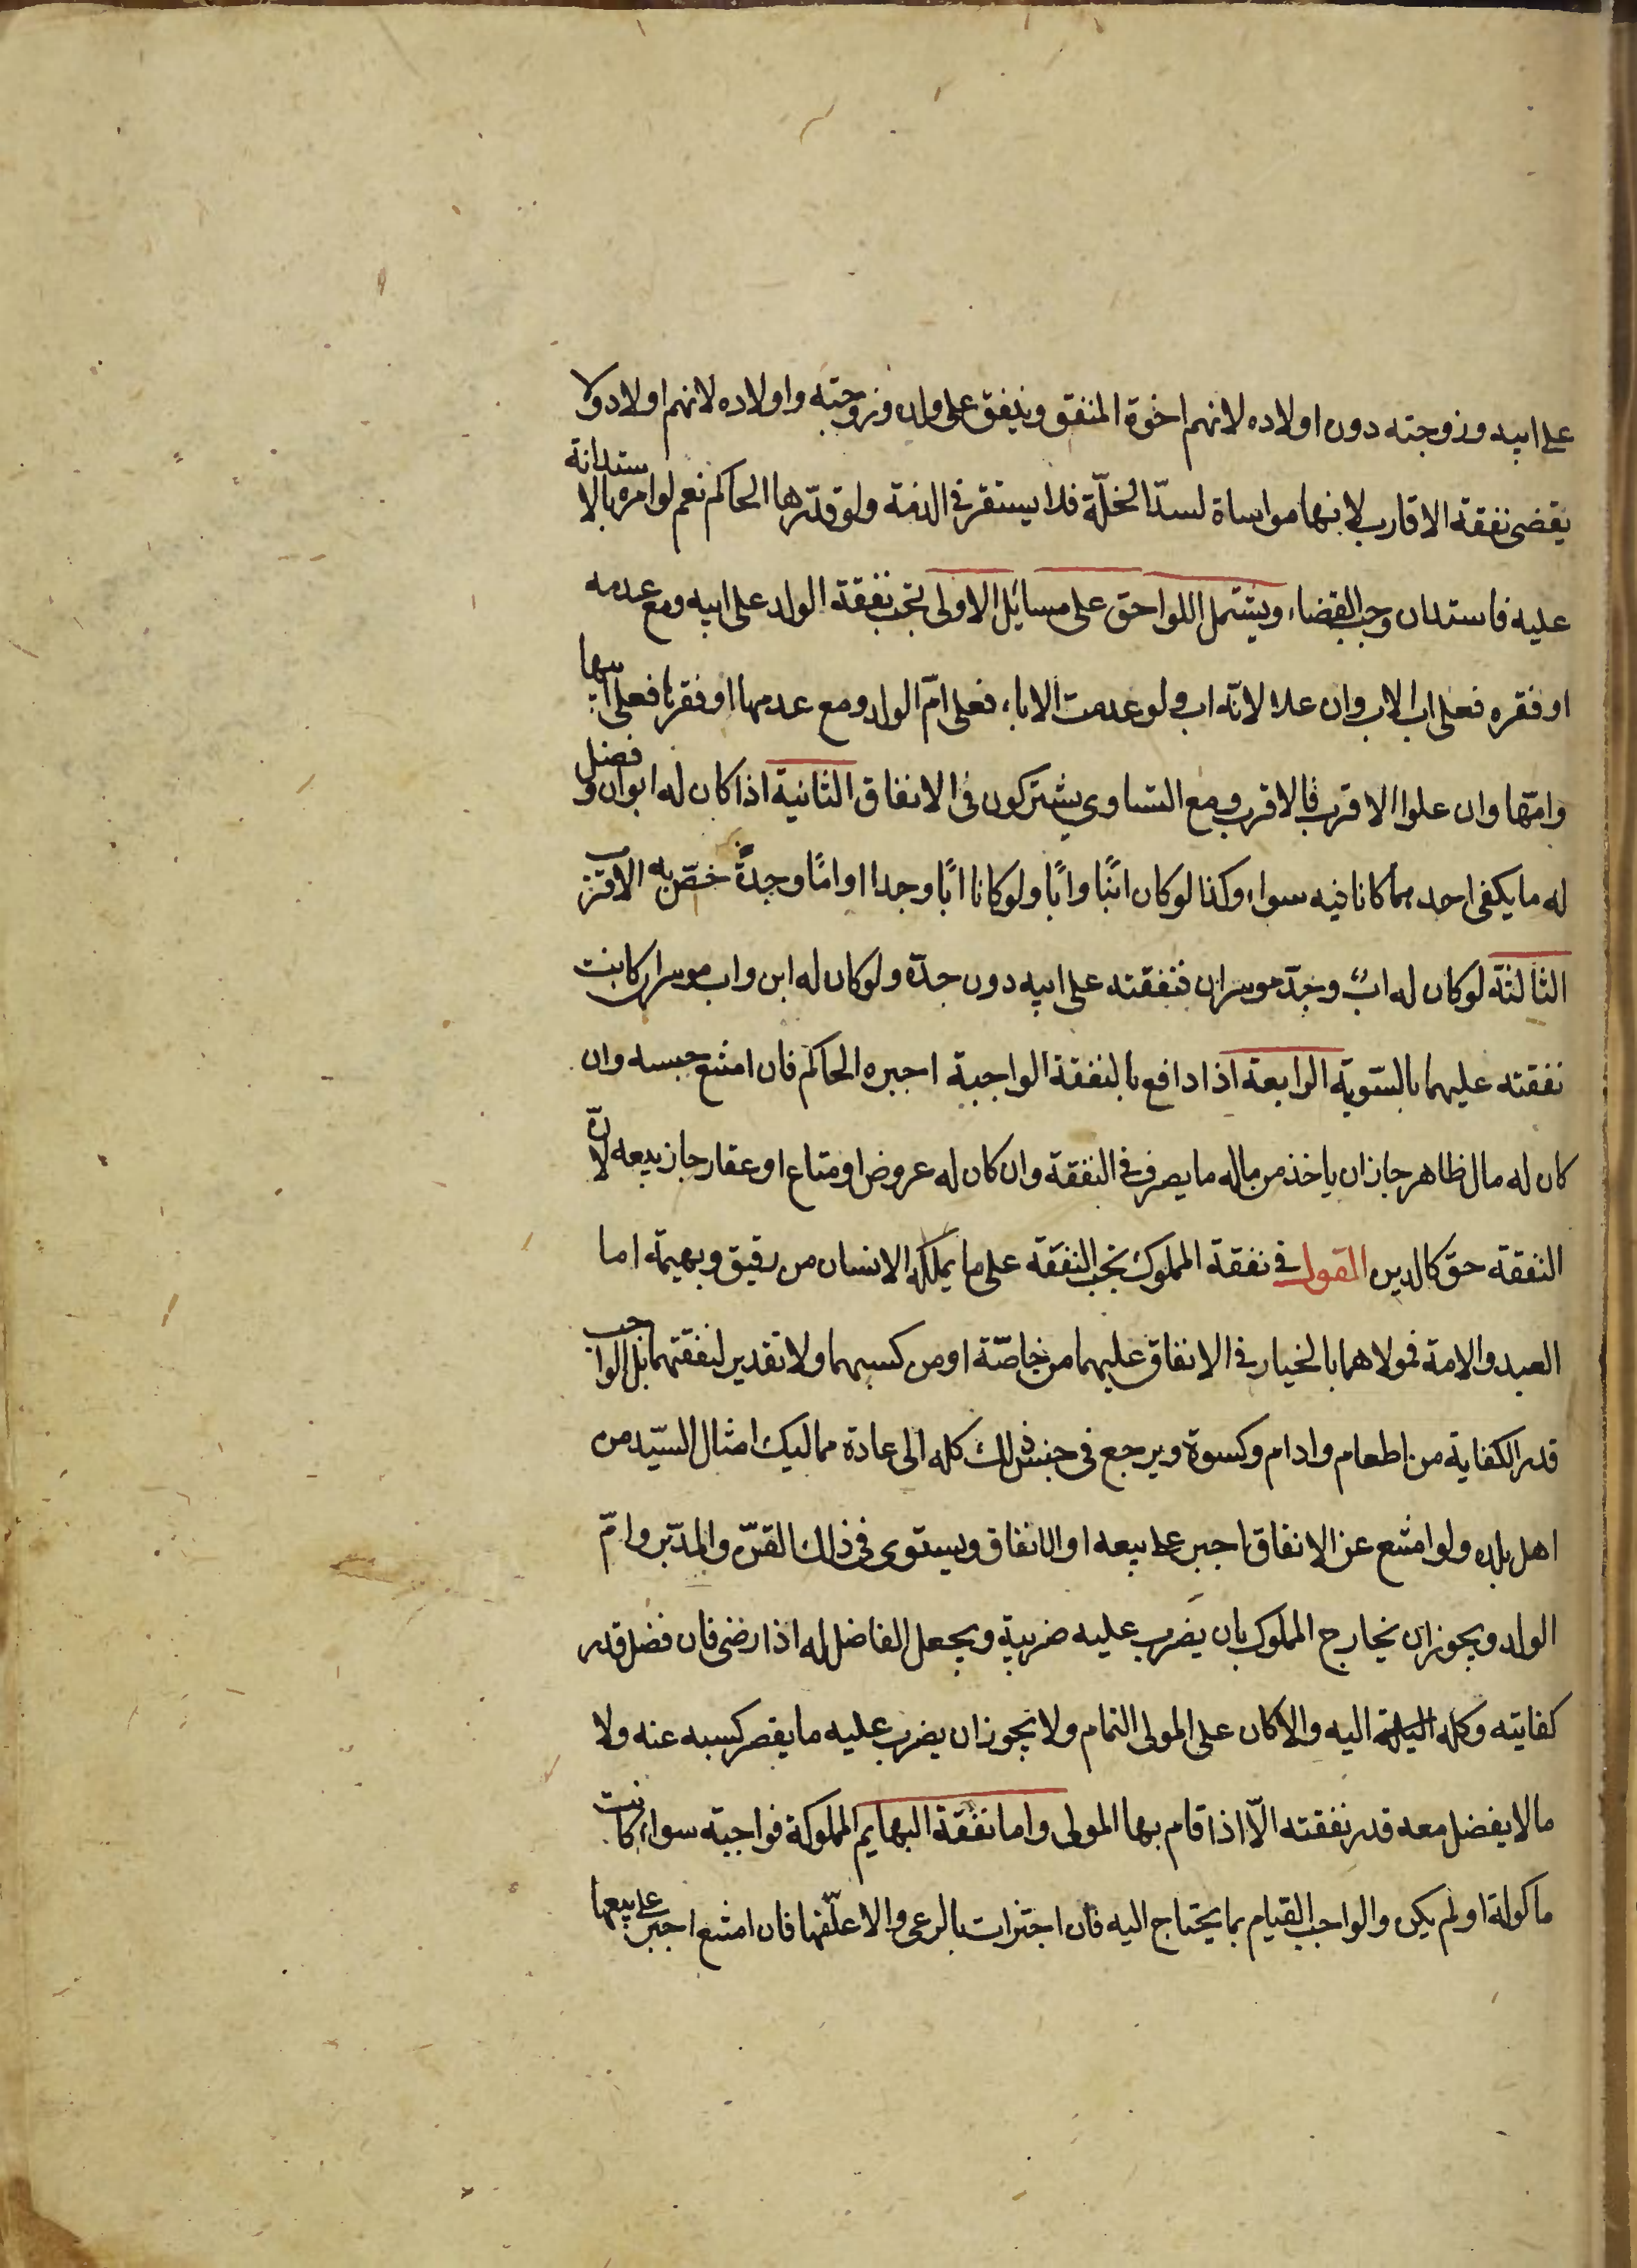 على ابيه وزوجته دون اولاده لانهم اخوة المنفق وينفق على ولده وزوجته واولاده لانهم اولاد ولا
يقضى نفقة الاقارب لانها مواساة لسدّ الخلّة فلا يستقر في الذمة ولو قدّرها الحاكم نعم لو امره بالاستدانة
عليه فاستدان وجب القضاء ويشتمل اللواحق على مسائل الاولى تجب نفقة الولد على ابيه ومع عدمه
او فقره فعلى اب الاب وان علا لانّه اب ولو عدمت الاباء فعلى امّ الولد ومع عدمها او فقرها فعلى ابيها
وامّها وان علوا الاقرب فالاقرب ومع التساوى يشتركون في الانفاق الثانية اذا كان له ابوان وفضل
له ما يكفى احدهما كانا فيه سواء وكذا لو كان ابنًا وابًا ولو كانا ابًا وجدا او امًا وجدةً خصّ به الاقرب
الثالثة لو كان له ابٌ وجدّ موسران فنفقته على ابيه دون جدّه ولو كان له ابن واب موسران كانت
نفقته عليهما بالسّوية الرابعة اذا دافع بالنفقة الواجبة اجبره الحاكم فان امتنع حبسه وان
كان له مال ظاهر جاز ان ياخذ من ماله ما يصرف في النفقة وان كان له عروض او متاع او عقار جاز بيعه لانّ
النفقة حق كالدين القول في نفقة المملوك تجب النفقة على ما يملكه الانسان من رقيق وبهيمة اما
العبد والامة فمولاهما بالخيار في الانفاق عليهما من خاصّة او من كسبهما ولا تقدير لنفقتهما بل الواجب
قدر الكفاية من اطعام وادام وكسوة ويرجع في جنس ذلك كله الى عادة مماليك امثال السيّد من
اهل بلده ولو امتنع عن الانفاق اجبر على بيعه او الانفاق ويستوى في ذلك القنّ والمدبّر وامّ
الولد ويجوز ان يخارج المملوك بان يضرب عليه ضريبة ويجعل الفاضل له اذا رضى فان فضل قدر
كفايته وكله اليه والا كان على المولى التمام ولا يجوز ان يضرب عليه ما يقصر كسبه عنه ولا
ما لا يفضل معه قدر نفقته الّا اذا قام بها المولى واما نفقة البهايم المملوكة فواجبة سواء كانت
ماكولة او لم يكن والواجب القيام بما يحتاج اليه فان اجتزات بالرعى والا علّفها فان امتنع اجبر على بيعها